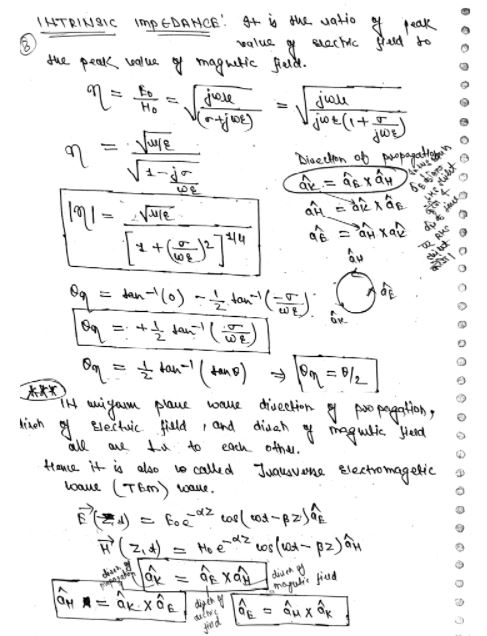 INTRINSIC IMPEDANCE: It is the ratio of peak
⑧ value of electric field to
the peak value of magnetic field.
η = E₀/H₀ = √(jωμ/(σ+jωε)) = √(jωμ/(jωε(1+σ/jωε)))
η = √(μ/ε) / √(1 - jσ/ωε)
Direction of propagation
âK = âE × âH
|η| = √(μ/ε) / [1 + (σ/ωε)²]^(1/4)
âH = âK × âE
âE = âH × âK
âH
âE
âK
θη = tan⁻¹(0) - ½ tan⁻¹(-σ/ωε)
θη = +½ tan⁻¹(σ/ωε)
θη = ½ tan⁻¹(tanθ) ⇒ θη = θ/2
***
IN uniform plane wave direction of propagation,
dirch of electric field, and dirch of magnetic field
all are ⊥r to each other.
Hence it is also called Transverse electromagetic
wave (TEM) wave.
E⃗(z,t) = E₀e^(-αz) cos(ωt-βz) âE
H⃗(z,t) = H₀e^(-αz) cos(ωt-βz) âH
dirch of propagation âK = âE × âH dirch of magnetic field
dirch of electric field
âH = âK × âE âE = âH × âK